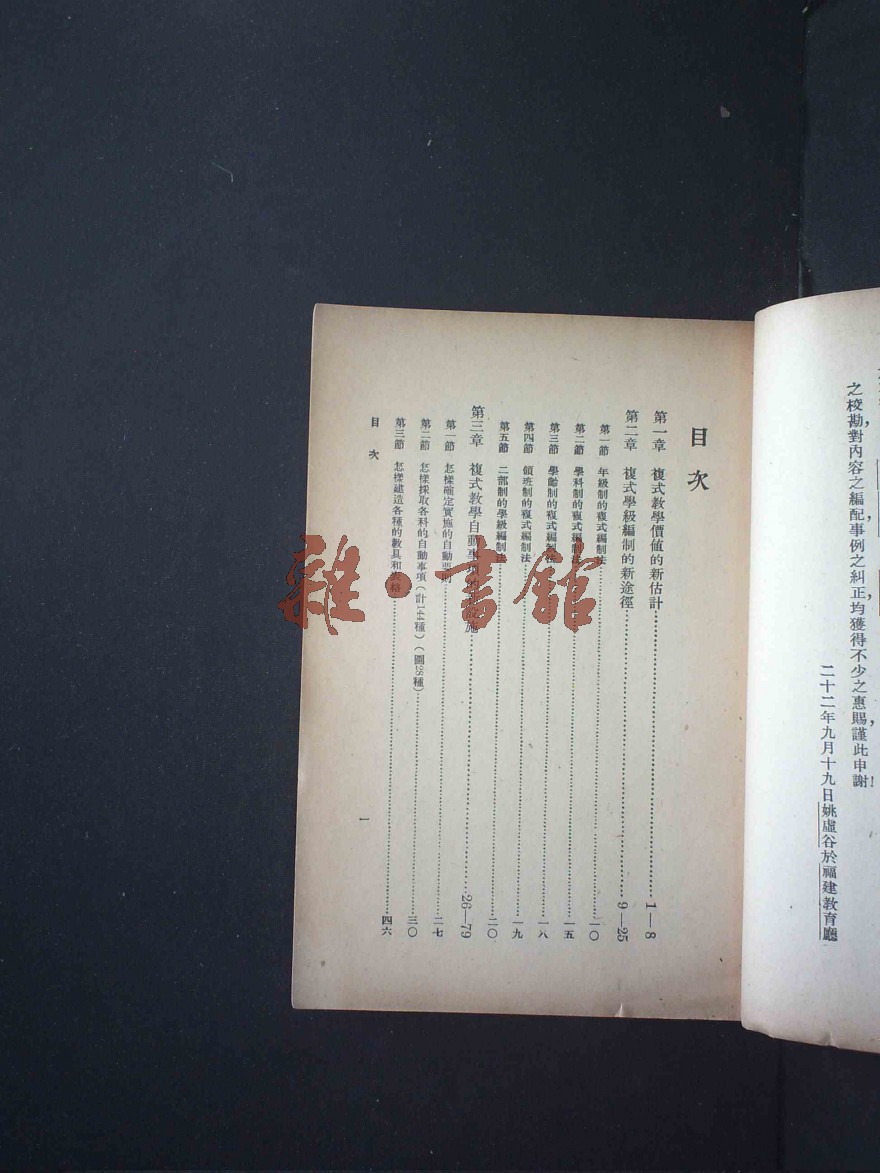 之校勘，對內容之編配，事例之糾正，均獲得不少之惠賜，謹此申謝！
二十二年九月十九日姚虛谷於福建教育廳
目次
第一章 複式教學價值的新估計 1—8
第二章 複式學級編制的新途徑 9—25
第一節 年級制的複式編制法 一〇
第二節 學科制的複式編制法 一五
第三節 學齡制的複式編制法 一八
第四節 領班制的複式編制法 一九
第五節 二部制的學級編制法 二〇
第三章 複式教學自動事項的 施 26—79
第一節 怎樣確定實施的自動要 二七
第二節 怎樣採取各科的自動事項（計144種）（圖28種） 三〇
第三節 怎樣建造各種的教具和表格 四六
目次
1
雜·書館